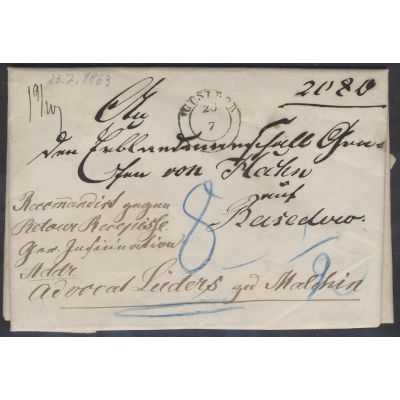 23.7.1863
2080
GÜSTROW
23
7
An
den Erblandmarschall Gra-
fen von Hahn
auf
Basedow.
Recommandirt gegen
Retour Recepisse
Ger. Insinuation
Addr
Advocat Lüders zu Malchin
8